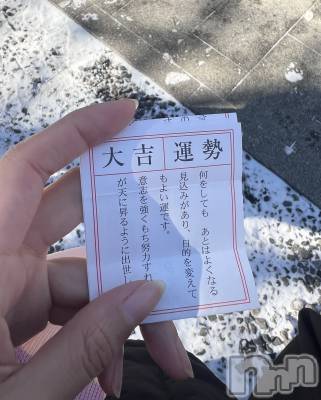 運勢
大吉
何をしても あとはよくなる
見込みがあり、目的を変えて
もよい運です。
意志を強くもち努力すれ
が天に昇るように出世
nnn